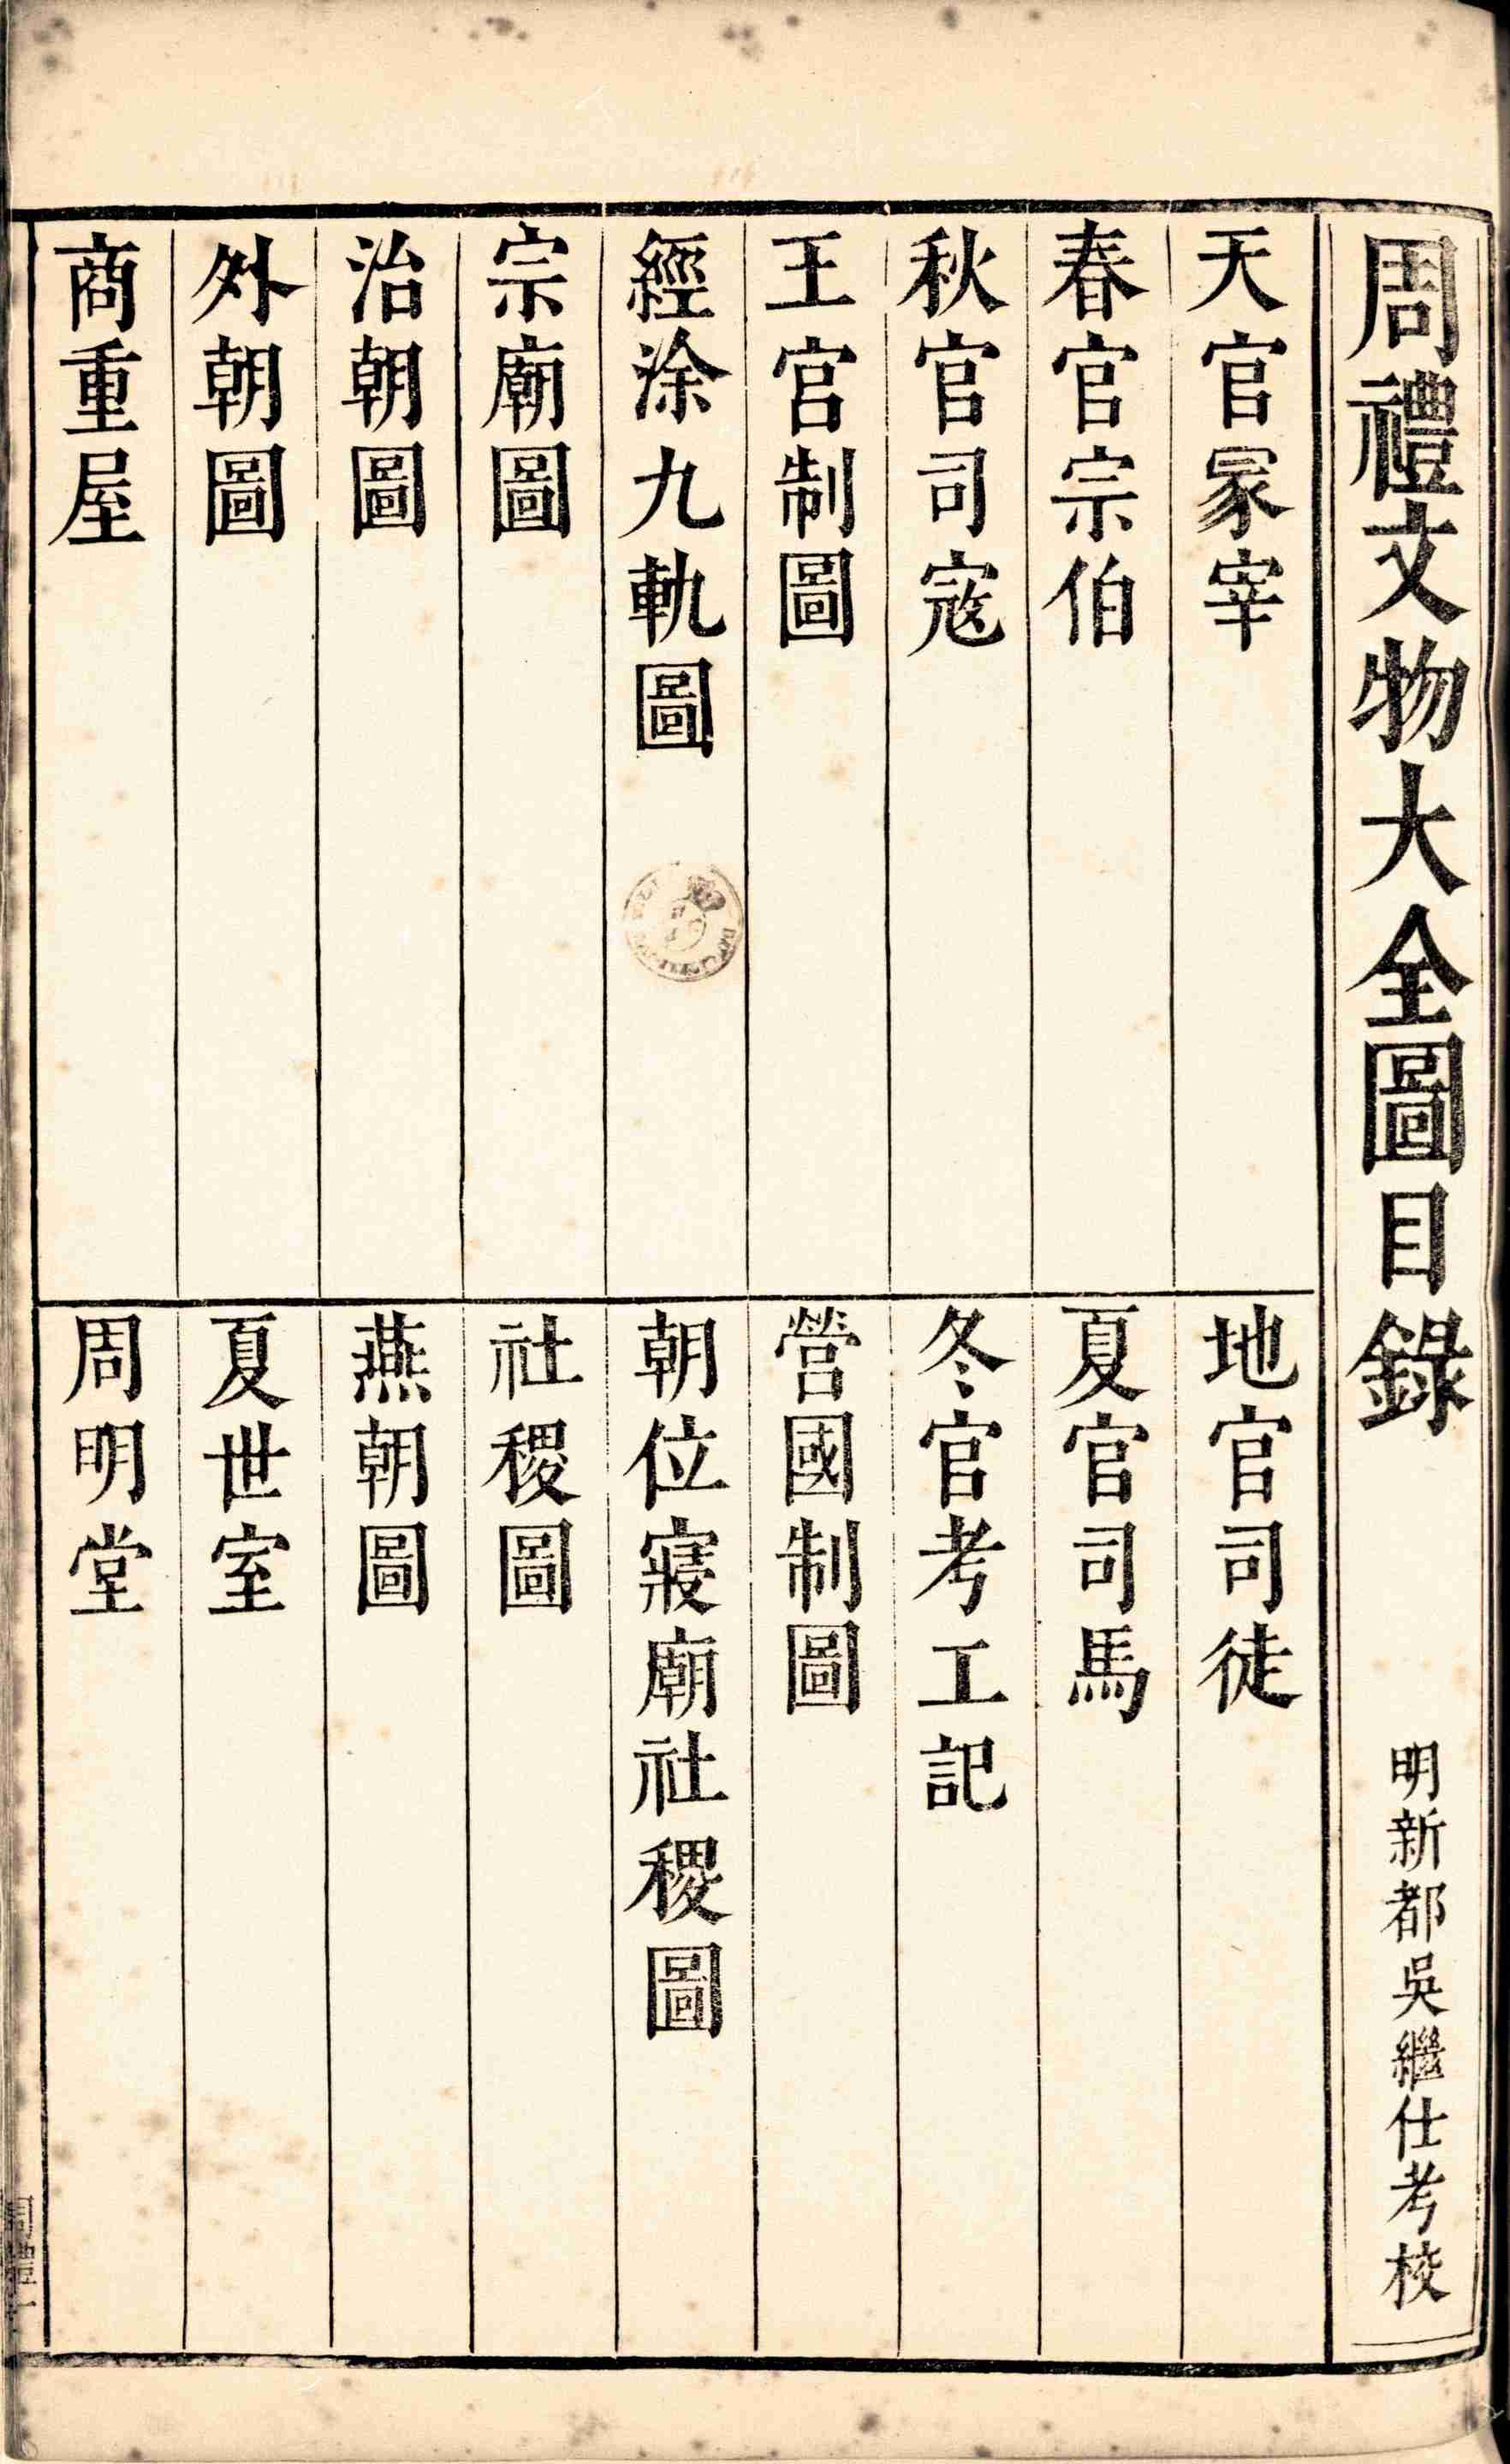 周禮文物大全圖目錄
明新都吳繼仕考校
天官冢宰
地官司徒
春官宗伯
夏官司馬
秋官司寇
冬官考工記
王宮制圖
營國制圖
經涂九軌圖
朝位寢廟社稷圖
宗廟圖
社稷圖
治朝圖
燕朝圖
外朝圖
夏世室
商重屋
周明堂
周禮